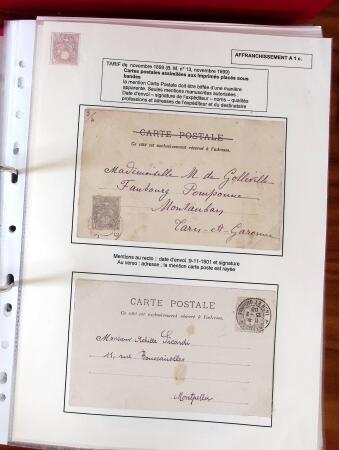 AFFRANCHISSEMENT A 1 c.
TARIF de novembre 1899 (B. M. n° 13, novembre 1899)
Cartes postales assimilées aux Imprimés placés sous
bandes
la mention Carte Postale doit être biffée d'une manière
apparente. Seules mentions manuscrites autorisées :
Date d'envoi – signature de l'expéditeur – noms – qualités
professions et adresses de l'expéditeur et du destinataire
3/6
CARTE POSTALE
Ce côté est exclusivement réservé à l'adresse.
Mademoiselle M. de Golleville
Faubourg Pomponne
Montauban
Tarn-et-Garonne
Mentions au recto ; date d'envoi :9-11-1901 et signature
Au verso : adresse ; la mention carte poste est rayée
CARTE POSTALE
Ce côté est exclusivement réservé à l'adresse.
Monsieur Achille Sicardi
11, rue
Montpellier